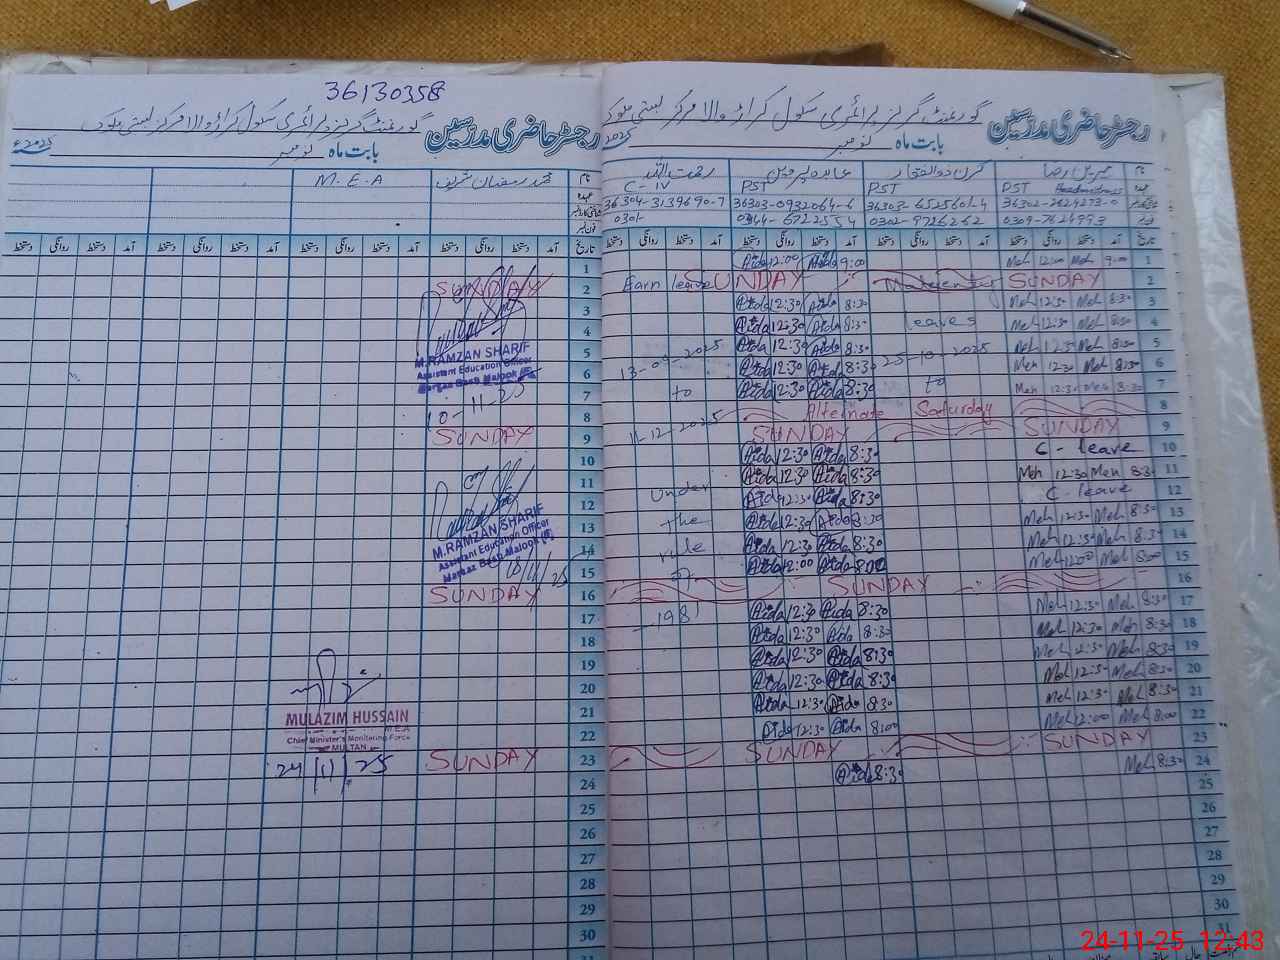 36130358
رجسٹر حاضری مدرسین گورنمنٹ گرلز پرائمری سکول کراڑ والا مرکز بستی ملوک
بابت ماہ نومبر 2025ء
نام محمد رمضان شریف M.E.A
تاریخ آمد دستخط روانگی دستخط آمد دستخط روانگی دستخط آمد دستخط روانگی دستخط آمد دستخط روانگی دستخط
1
2 SUNDAY
3
4
5 M.RAMZAN SHARIF
6 Assistant Education Officer
Markaz Basti Malook
7
8 10-11-25
9 SUNDAY
10
11
12
13 M.RAMZAN SHARIF
14 Assistant Education Officer
Markaz Basti Malook
15
16 SUNDAY
17
18
19
20
21 MULAZIM HUSSAIN
M.E.A
22 Chief Minister's Monitoring Force
MULTAN
23 SUNDAY 24/11/.25
24
25
26
27
28
29
30
31
رجسٹر حاضری مدرسین گورنمنٹ گرلز پرائمری سکول کراڑ والا مرکز بستی ملوک
بابت ماہ نومبر 2025
نام کرن ذوالفقار عابدہ پروین رحمت اللہ
عہدہ PST Headmistress PST PST C-IV
36302-2624273-0 36303-6525601-4 36303-0932064-6 36304-3139690-7
0309-7624993 0302-9726262 0344-6722554 0301-
تاریخ آمد دستخط روانگی دستخط آمد دستخط روانگی دستخط آمد دستخط روانگی دستخط آمد دستخط روانگی دستخط
1 9:00 Meh 12:00 Meh 9:00 Aida 12:00 Aida
2 SUNDAY SUNDAY Earn leave
3 8:30 Meh 12:30 Meh 8:30 Aida 12:30 Aida
4 8:30 Meh 12:30 Meh leaves 8:30 Aida 12:30 Aida
5 8:30 Meh 12:30 Meh 25-10-2025 8:30 Aida 12:30 Aida 13-09-2025
6 8:30 Meh 12:30 Meh 8:30 Aida 12:30 Aida
7 8:30 Meh 12:30 Meh to 8:30 Aida 12:30 Aida to
8 Alternate Saturday
9 SUNDAY SUNDAY 11-12-2025
10 C-leave 8:30 Aida 12:30 Aida
11 8:30 Meh 12:30 Meh 8:30 Aida 12:30 Aida
12 C-leave 8:30 Aida 12:30 Aida Under
13 8:30 Meh 12:30 Meh 8:30 Aida 12:30 Aida the
14 8:30 Meh 12:30 Meh 8:30 Aida 12:30 Aida rule
15 8:00 Meh 12:00 Meh 8:00 Aida 12:00 Aida
16 SUNDAY
17 8:30 Meh 12:30 Meh 8:30 Aida 12:30 Aida 1981
18 8:30 Meh 12:30 Meh 8:30 Aida 12:30 Aida
19 8:30 Meh 12:30 Meh 8:30 Aida 12:30 Aida
20 8:30 Meh 12:30 Meh 8:30 Aida 12:30 Aida
21 8:30 Meh 12:30 Meh 8:30 Aida 12:30 Aida
22 8:00 Meh 12:00 Meh 8:00 Aida 12:30 Aida
23 SUNDAY SUNDAY
24 8:30 Meh 8:30 Aida
25
26
27
28
29
30
31
24-11-25 12:43